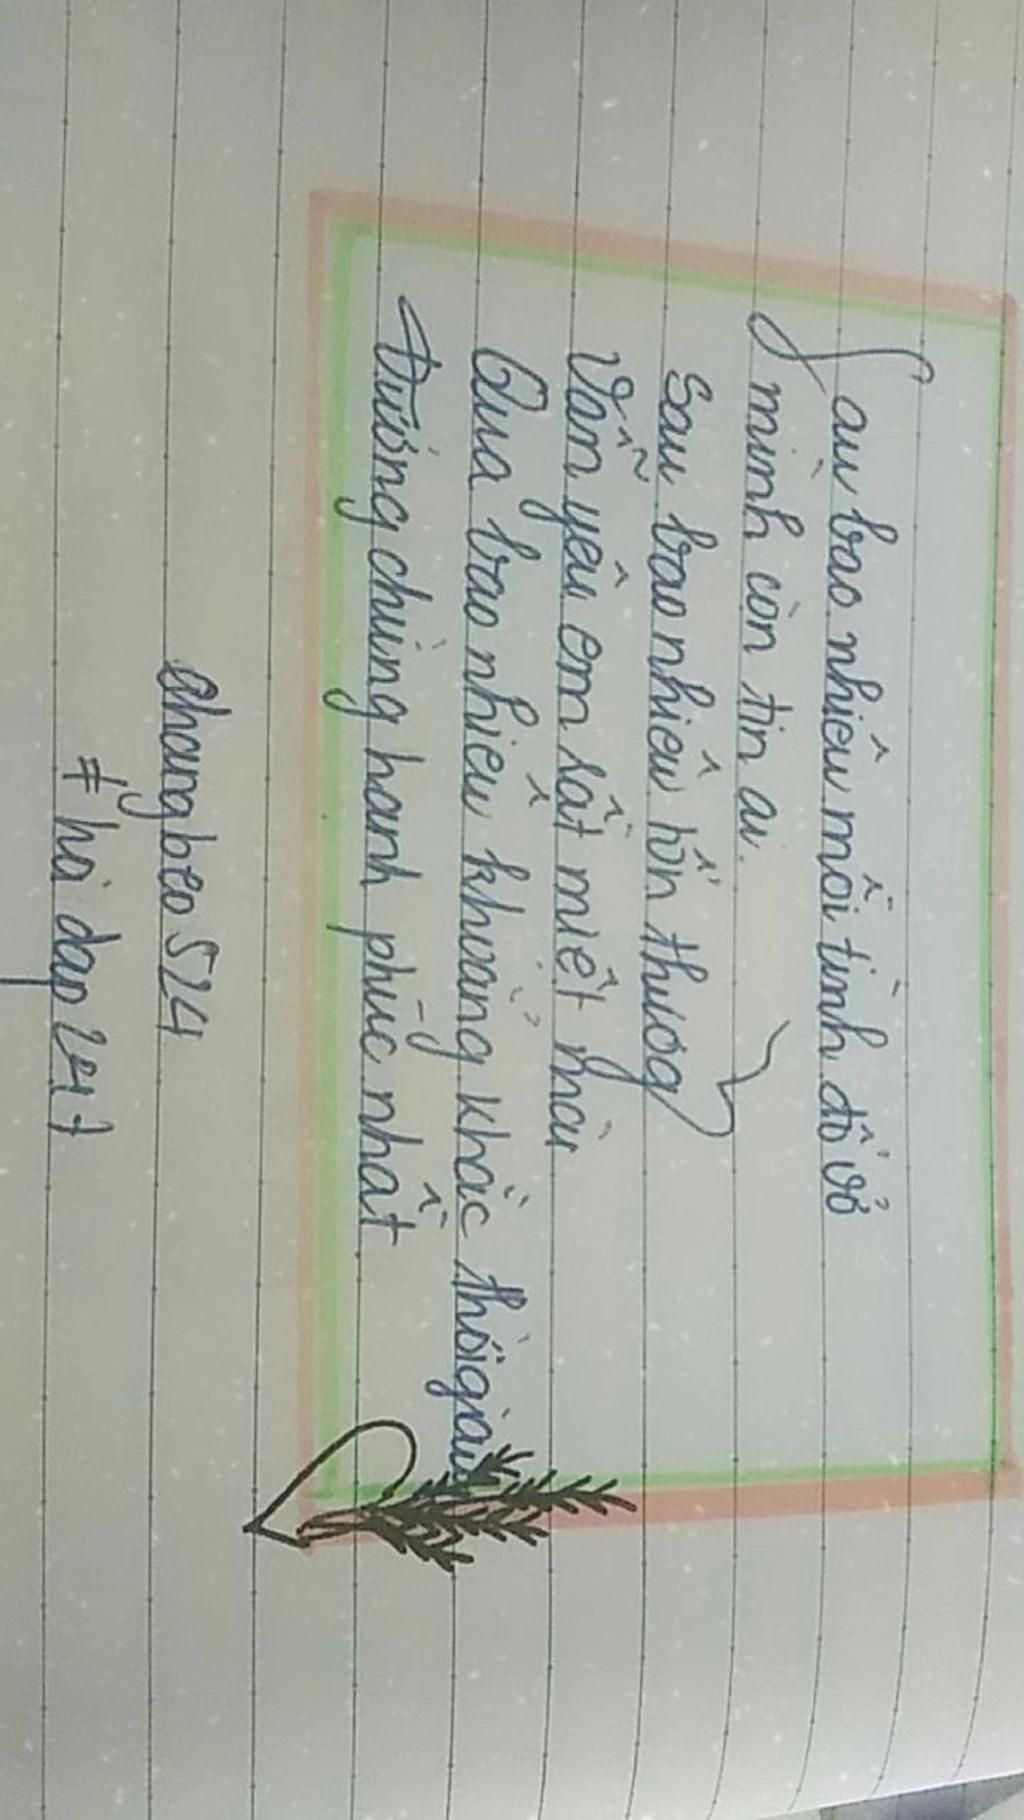 Sau bao nhiêu mối tình đổ vỡ
mình còn tin ai.
Sau bao nhiêu tổn thươg
Vẫn yêu em rất miệt mài
Qua bao nhiêu khoảng khắc thời gian
Tưởng chừng hạnh phúc nhất
Thangbeo524
# hỏi đáp 247